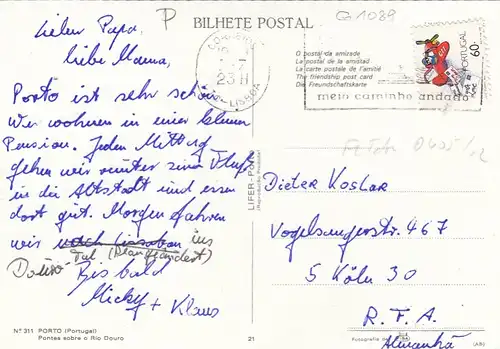 P
BILHETE POSTAL
G 1089
Lieber Papa,
liebe Mama,
Porto ist sehr schön
Wir wohnen in einer kleinen
Pension. Jeden Mittag
gehen wir runter zum Fluß
in die Altstadt und essen
dort gut. Morgen fahren
wir nach Lissabon ins
Douro-Tal (Plan geändert)
Bis bald
Micky + Klaus
23 H
LISBOA
O postal da amizade
La postal de la amistad
La carte postale de l'amitié
The friendship post card
Die Freundschaftskarte
meio caminho andado
PORTUGAL
60.
LIFER-PORTO
(Reprodução Proibida)
Dieter Koslar
Vogelsangerstr. 467
5 Köln 30
R.F.A.
Alemanha
Nº 311 PORTO (Portugal)
Pontes sobre o Rio Douro
21
Fotografia de
(AR)